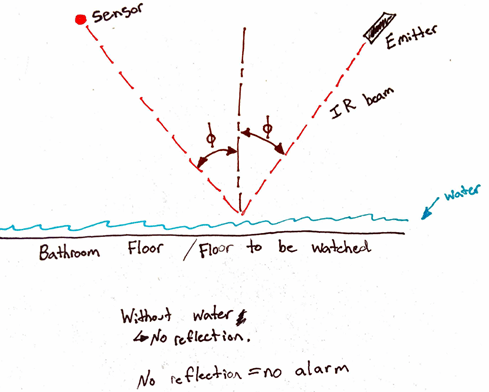 Sensor
Emitter
IR beam
ϕ
ϕ
Water
Bathroom Floor / Floor to be watched
Without water
↳ No reflection.
No reflection = no alarm